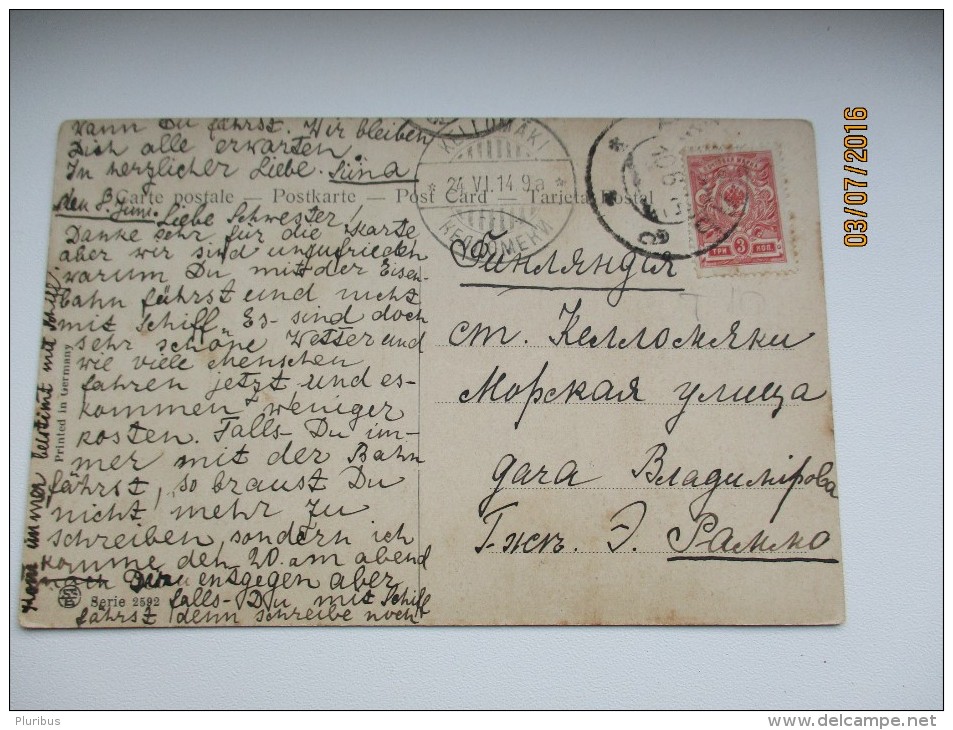 wann Du fährst. Wir bleiben
Dich alle erwarten
In herzlicher Liebe. Siina
Carte postale — Postkarte — Post Card — Tarjeta Postal
den 8. Juni. Liebe Schwester!
Danke sehr für die Karte
aber wir sind unzufrieden
warum Du mit der Eisen-
bahn fährst und nicht
mit Schiff. Es sind doch
sehr schöne Wetter und
wie viele Menschen
fahren jetzt und es-
kommen weniger
kosten. Falls Du im-
mer mit der Bahn
fährst, so braust Du
nicht mehr zu
schreiben, sondern ich
komme den 20. am abend
entgegen aber
falls Du mit Schiff
fährst denn schreibe noch
immer bestimt mit Schiff!
Printed in Germany
Serie 2592
KELLOMÄKI
24.VI.14 9a
Финляндия
ст. Келломяки
Морская улица
дача Владимірова
Г-жѣ. Э. Раммо
ТРИ 3 КОП.
03/07/2016
Pluribus
www.delcampe.net